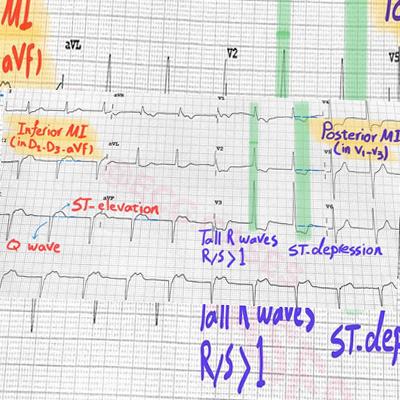 MI
aVf)
aVL
V2
V5
Inferior MI
(in D2-D3-aVf)
Posterior MI
(in V1-V3)
V2
V3
V6
aVF
ST-elevation
Q wave
Tall R waves
R/S>1
ST.depression
Tall R waves
R/S>1
ST.dep